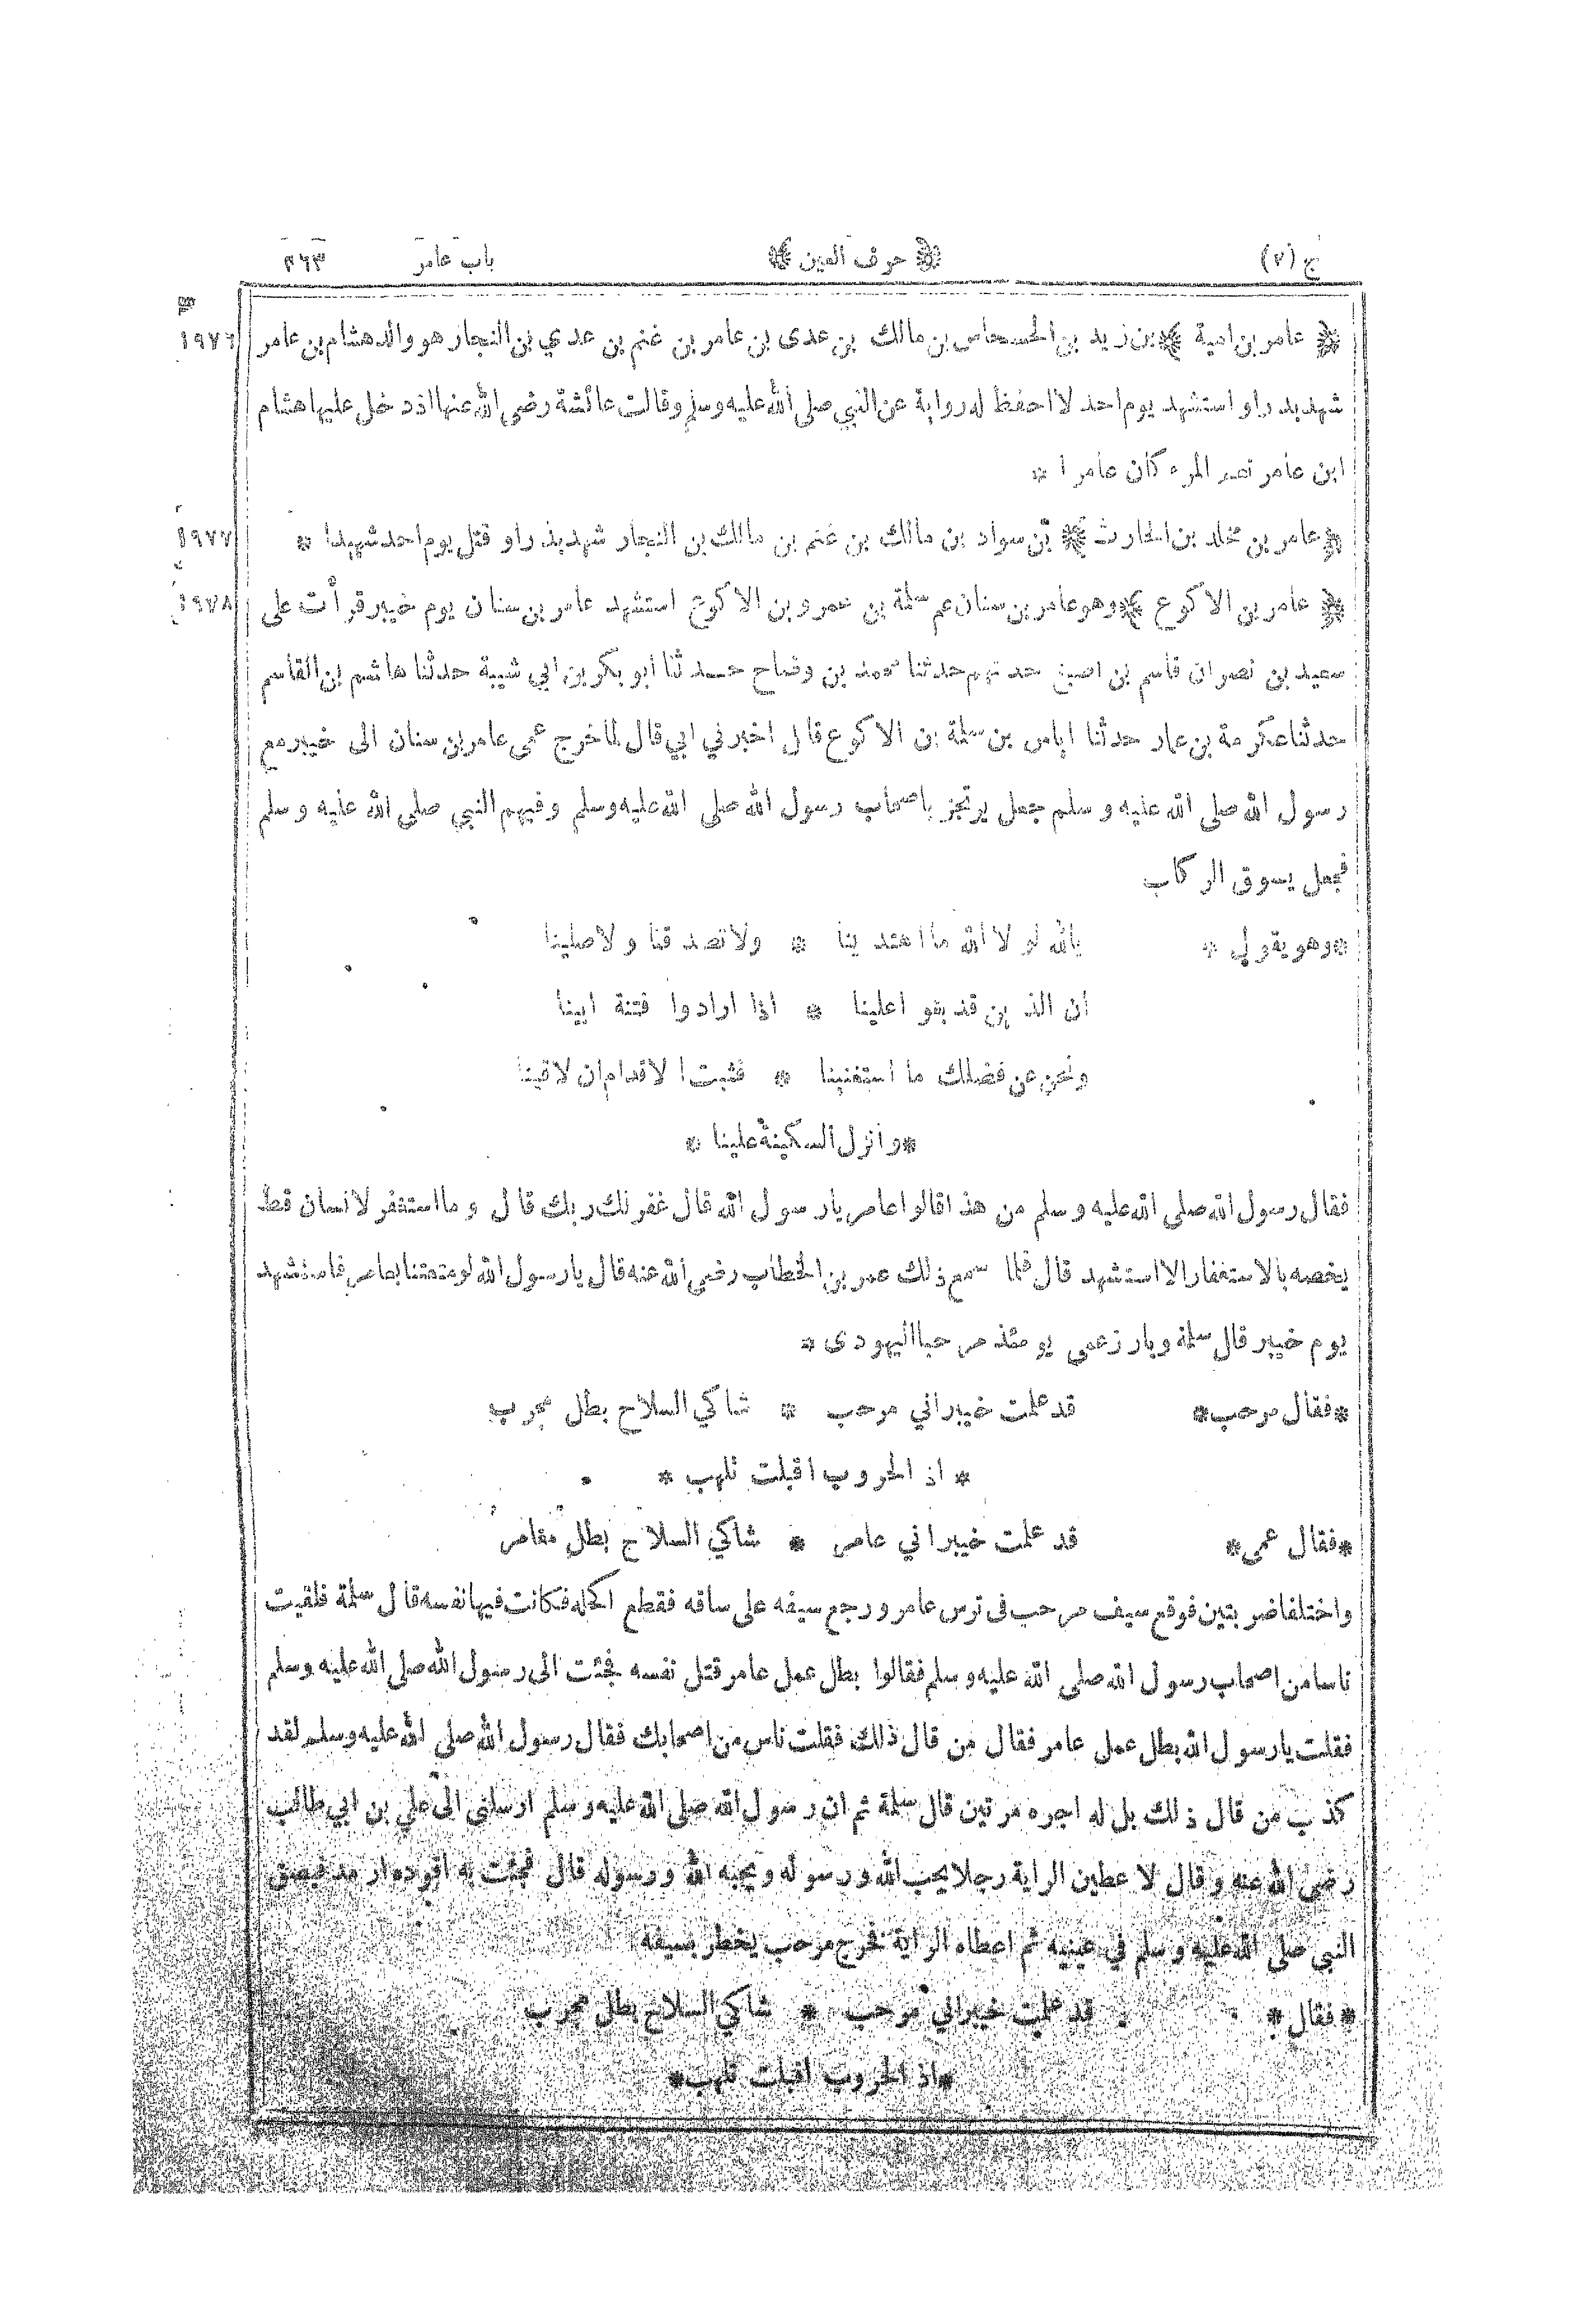 ج (٢) ﴿ حرف العين ﴾ باب عامر ٤٦٣
١٩٧٦
﴿ عامر بن امية ﴾ بن زيد بن الحسحاس بن مالك بن عدى بن عامر بن غنم بن عدي بن النجار هو والد هشام بن عامر
شهد بدرا و استشهد يوم احد لا احفظ له رواية عن النبي صلى الله عليه وسلم وقالت عائشة رضي الله عنها اذ دخل عليها هشام
ابن عامر نعم المرء كان عامرا *
١٩٧٧
﴿ عامر بن مخلد بن الحارث ﴾ بن سواد بن مالك بن غنم بن مالك بن النجار شهد بدرا و قتل يوم احد شهيدا *
١٩٧٨
﴿ عامر بن الاكوع ﴾ وهو عامر بن سنان عم سلمة بن عمرو بن الاكوع استشهد عامر بن سنان يوم خيبر قرأت على
سعيد بن نصر ان قاسم بن اصبغ حدثهم حدثنا محمد بن وضاح حدثنا ابو بكر بن ابي شيبة حدثنا هاشم بن القاسم
حدثنا عكرمة بن عمار حدثنا اياس بن سلمة بن الاكوع قال اخبرني ابي قال لما خرج عمى عامر بن سنان الى خيبر مع
رسول الله صلى الله عليه وسلم جعل يرتجز باصحاب رسول الله صلى الله عليه وسلم وفيهم النبي صلى الله عليه وسلم
فجعل يسوق الركاب
*وهو يقول * بالله لو لا الله ما اهتدينا * ولا تصدقنا ولا صلينا
ان الذين قد بغوا علينا * اذا ارادوا فتنة ابينا
ونحن عن فضلك ما استغنينا * فثبت الاقدام ان لاقينا
*وأنزل السكينة علينا *
فقال رسول الله صلى الله عليه وسلم من هذا قالوا عامر يارسول الله قال غفر لك ربك قال وما استغفر لانسان قط
يخصه بالاستغفار الا استشهد قال فلما سمع ذلك عمر بن الخطاب رضي الله عنه قال يارسول الله لو متعتنا بعامر فاستشهد
يوم خيبر قال سلمة وبارز عمى يومئذ مرحبا اليهودى *
*فقال مرحب* قد علمت خيبر اني مرحب * شاكي السلاح بطل مجرب
* اذ الحروب اقبلت تلهب *
*فقال عمى* قد علمت خيبر اني عامر * شاكي السلاح بطل مغامر
واختلفا ضربتين فوقع سيف مرحب فى ترس عامر و رجع سيفه على ساقه فقطع اكحله فكانت فيها نفسه قال سلمة فلقيت
ناسا من اصحاب رسول الله صلى الله عليه وسلم فقالوا بطل عمل عامر قتل نفسه فجئت الى رسول الله صلى الله عليه وسلم
فقلت يارسول الله بطل عمل عامر فقال من قال ذلك فقلت ناس من اصحابك فقال رسول الله صلى الله عليه وسلم لقد
كذب من قال ذلك بل له اجره مرتين قال سلمة ثم ان رسول الله صلى الله عليه وسلم ارسلنى الى علي بن ابي طالب
رضى الله عنه وقال لاعطين الراية رجلا يحب الله و رسوله ويحبه الله و رسوله قال فجئت به اقوده ارمد فبصق
النبي صلى الله عليه وسلم في عينيه ثم اعطاه الراية فخرج مرحب يخطر بسيفه
*فقال * قد علمت خيبر اني مرحب * شاكي السلاح بطل مجرب
*اذ الحروب اقبلت تلهب*